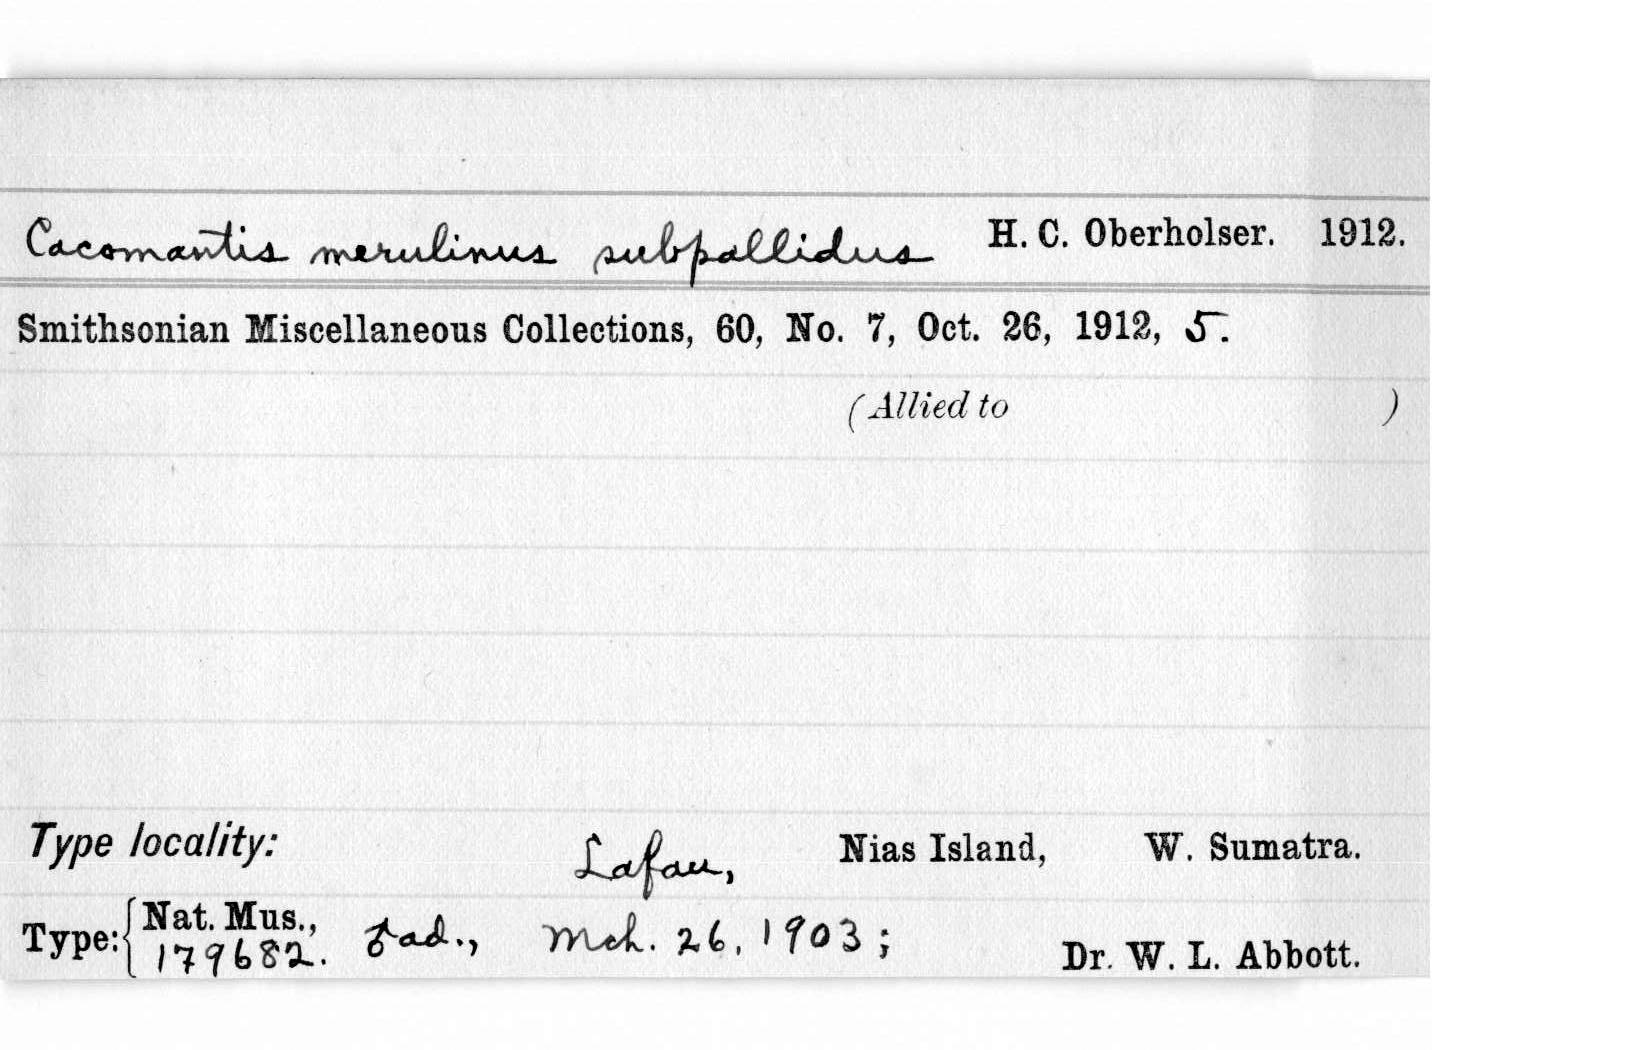 Cacomantis merulinus subpallidus H. C. Oberholser. 1912.
Smithsonian Miscellaneous Collections, 60, No. 7, Oct. 26, 1912, 5.
(Allied to )
Type locality: Lafau, Nias Island, W. Sumatra.
Type: { Nat. Mus., 179682. ♂ ad., Mch. 26, 1903; Dr. W. L. Abbott.